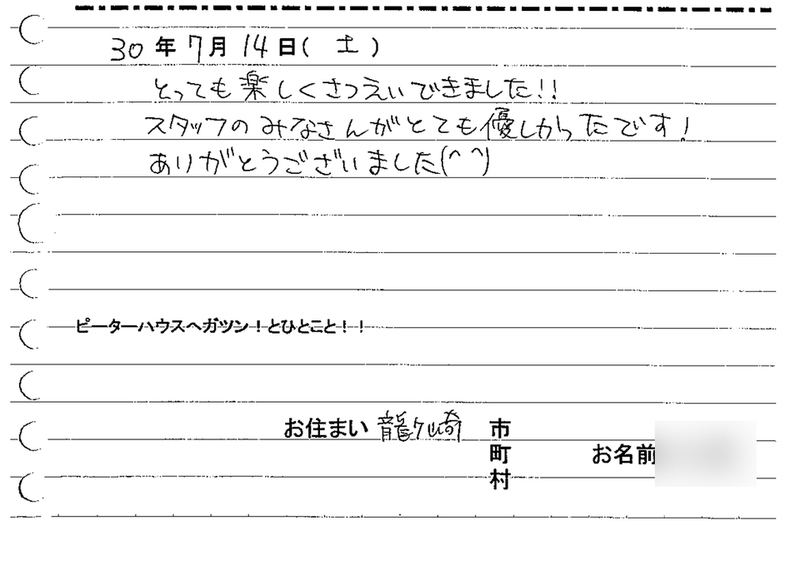 30年7月14日(土)
とっても楽しくさつえいできました!!
スタッフのみなさんがとても優しかったです!
ありがとうございました(^^)
ピーターハウスへガツン!とひとこと!!
お住まい 龍ケ崎 市
町 お名前
村